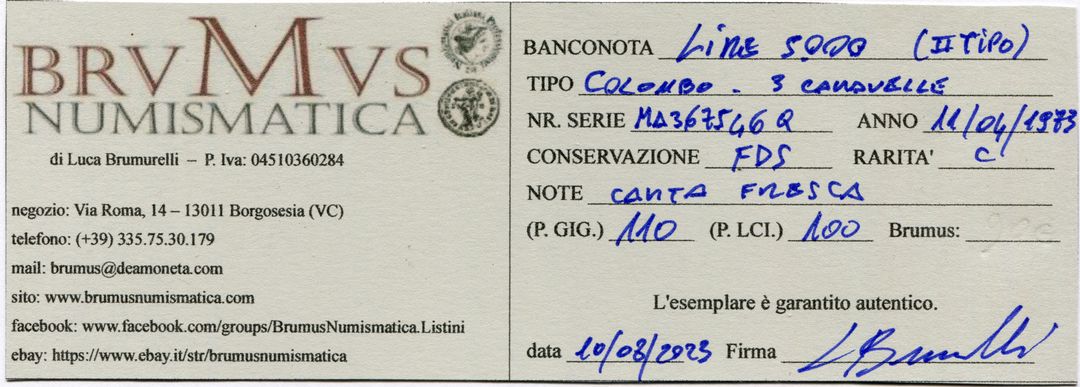 BRVMVS
NUMISMATICA
di Luca Brumurelli – P. Iva: 04510360284
negozio: Via Roma, 14 – 13011 Borgosesia (VC)
telefono: (+39) 335.75.30.179
mail: brumus@deamoneta.com
sito: www.brumusnumismatica.com
facebook: www.facebook.com/groups/BrumusNumismatica.Listini
ebay: https://www.ebay.it/str/brumusnumismatica
BANCONOTA LIRE 5000 (II TIPO)
TIPO COLOMBO - 3 CARAVELLE
NR. SERIE MA367546Q ANNO 11/04/1973
CONSERVAZIONE FDS RARITA' C
NOTE CARTA FRESCA
(P. GIG.) 110 (P. LCI.) 100 Brumus:
L'esemplare è garantito autentico.
data 10/08/2023 Firma L Brumurelli